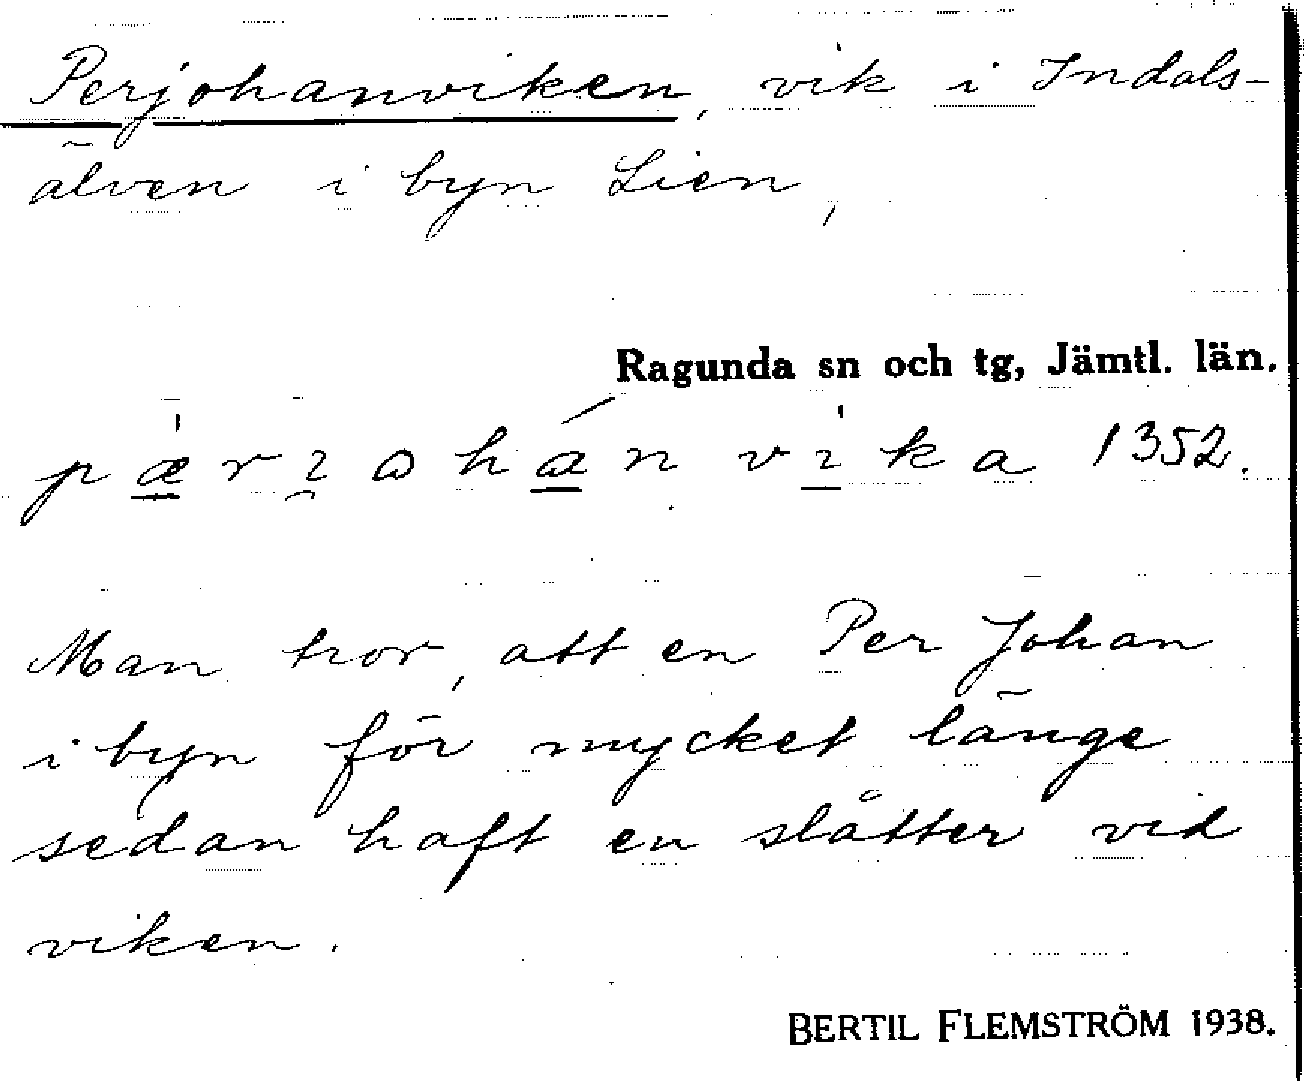 Perjohanviken, vik i Indals-
älven i byn Lien,
Ragunda sn och tg, Jämtl. län.
pæ̀rɩ̯ohán vìka 1352.
Man tror, att en Per Johan
i byn för mycket länge
sedan haft en slåtter vid
viken.
BERTIL FLEMSTRÖM 1938.